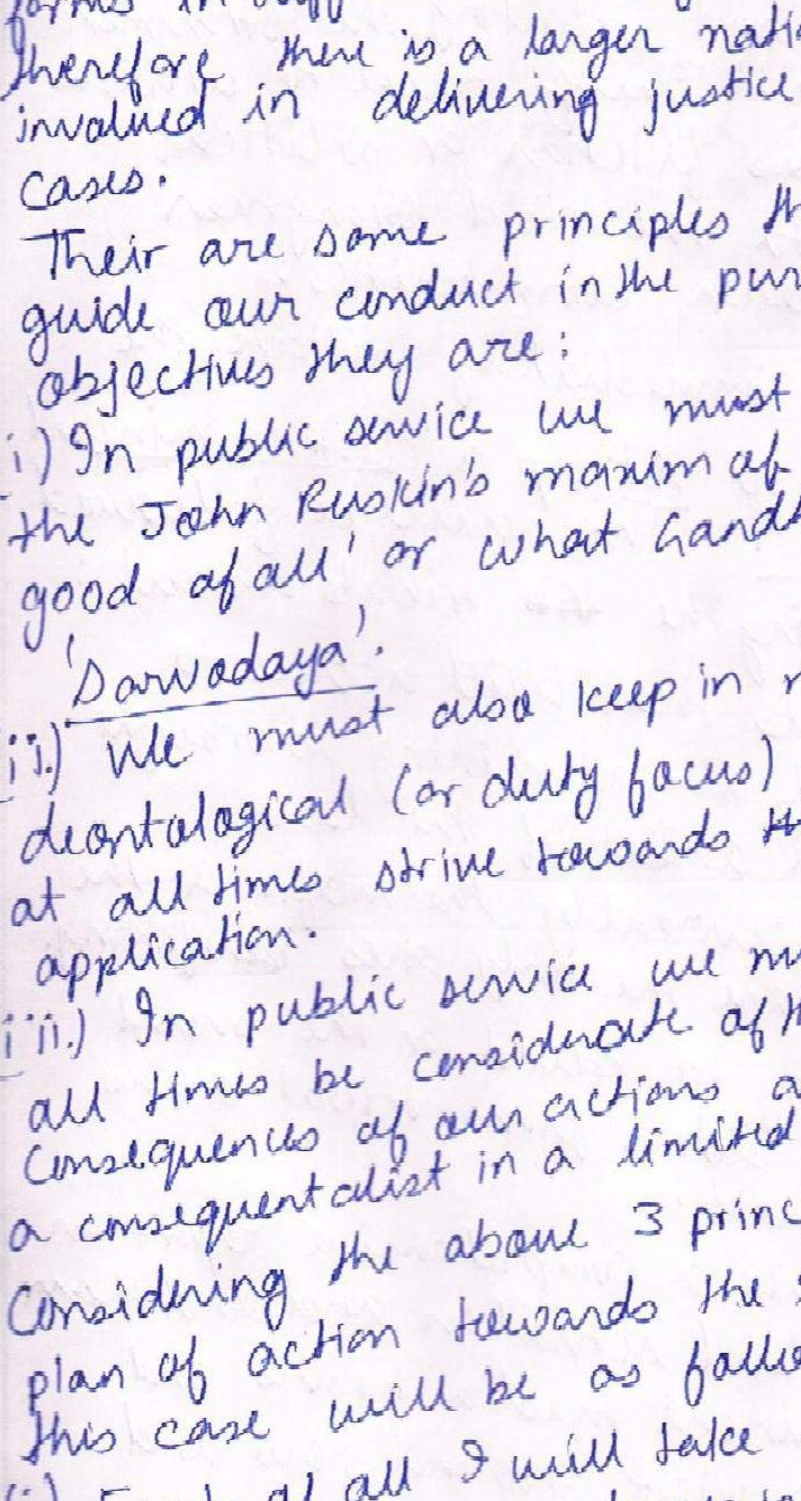 therefore there is a larger nati
involved in delivering justice
cases.
Their are some principles th
guide our conduct in the pur
objectives they are:
i) In public service we must
the John Ruskin's maxim of
good of all' or what Gandh
'Sarvodaya'.
ii.) We must also keep in m
deontological (or duty focus)
at all times strive towards th
application.
iii.) In public service we mu
all times be considerate of th
consequences of our actions a
a consequentalist in a limited
Considering the above 3 princ
plan of action towards the s
this case will be as follow
of all I will take